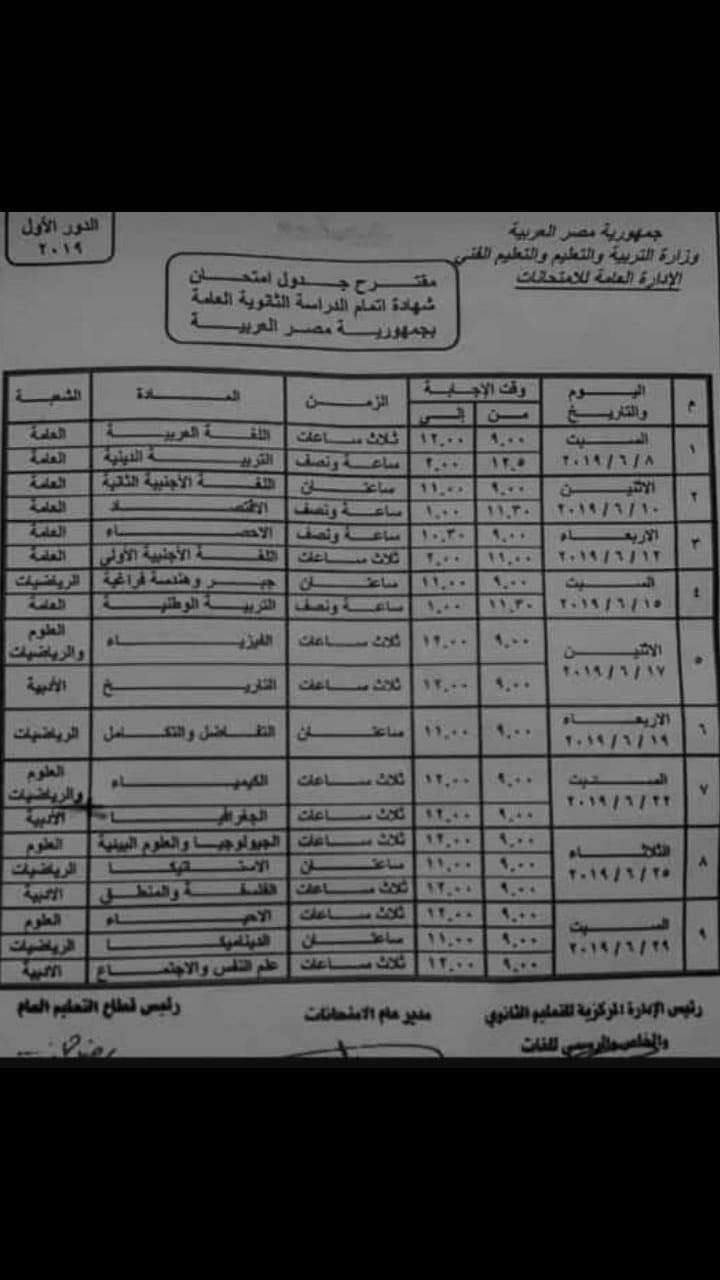 جمهورية مصر العربية
وزارة التربية والتعليم والتعليم الفنى
الإدارة العامة للامتحانات
الدور الأول
٢٠١٩
مقترح جدول امتحان
شهادة اتمام الدراسة الثانوية العامة
بجمهورية مصر العربية
م اليوم والتاريخ وقت الإجابة من إلى الزمن المادة الشعبة
١ السبت ٢٠١٩/٦/٨ ٩,٠٠ ١٢,٠٠ ثلاث ساعات اللغة العربية العامة
١٢,٥ ٢,٠٠ ساعة ونصف التربية الدينية العامة
٢ الاثنين ٢٠١٩/٦/١٠ ٩,٠٠ ١١,٠٠ ساعتان اللغة الأجنبية الثانية العامة
١١,٣٠ ١,٠٠ ساعة ونصف الاقتصاد العامة
٣ الاربعاء ٢٠١٩/٦/١٢ ٩,٠٠ ١٠,٣٠ ساعة ونصف الاحصاء العامة
١١,٠٠ ٢,٠٠ ثلاث ساعات اللغة الأجنبية الأولى العامة
٤ السبت ٢٠١٩/٦/١٥ ٩,٠٠ ١١,٠٠ ساعتان جبر وهندسة فراغية الرياضيات
١١,٣٠ ١,٠٠ ساعة ونصف التربية الوطنية العامة
٥ الاثنين ٢٠١٩/٦/١٧ ٩,٠٠ ١٢,٠٠ ثلاث ساعات الفيزياء العلوم والرياضيات
٩,٠٠ ١٢,٠٠ ثلاث ساعات التاريخ الأدبية
٦ الاربعاء ٢٠١٩/٦/١٩ ٩,٠٠ ١١,٠٠ ساعتان التفاضل والتكامل الرياضيات
٧ السبت ٢٠١٩/٦/٢٢ ٩,٠٠ ١٢,٠٠ ثلاث ساعات الكيمياء العلوم والرياضيات
٩,٠٠ ١٢,٠٠ ثلاث ساعات الجغرافيا الأدبية
٨ الثلاثاء ٢٠١٩/٦/٢٥ ٩,٠٠ ١٢,٠٠ ثلاث ساعات الجيولوجيا والعلوم البيئية العلوم
٩,٠٠ ١١,٠٠ ساعتان الاستاتيكا الرياضيات
٩,٠٠ ١٢,٠٠ ثلاث ساعات الفلسفة والمنطق الأدبية
٩ السبت ٢٠١٩/٦/٢٩ ٩,٠٠ ١٢,٠٠ ثلاث ساعات الاحياء العلوم
٩,٠٠ ١١,٠٠ ساعتان الديناميكا الرياضيات
٩,٠٠ ١٢,٠٠ ثلاث ساعات علم النفس والاجتماع الأدبية
رئيس الإدارة المركزية للتعليم الثانوي
والخاص والرسمي للغات
مدير عام الامتحانات
رئيس قطاع التعليم العام